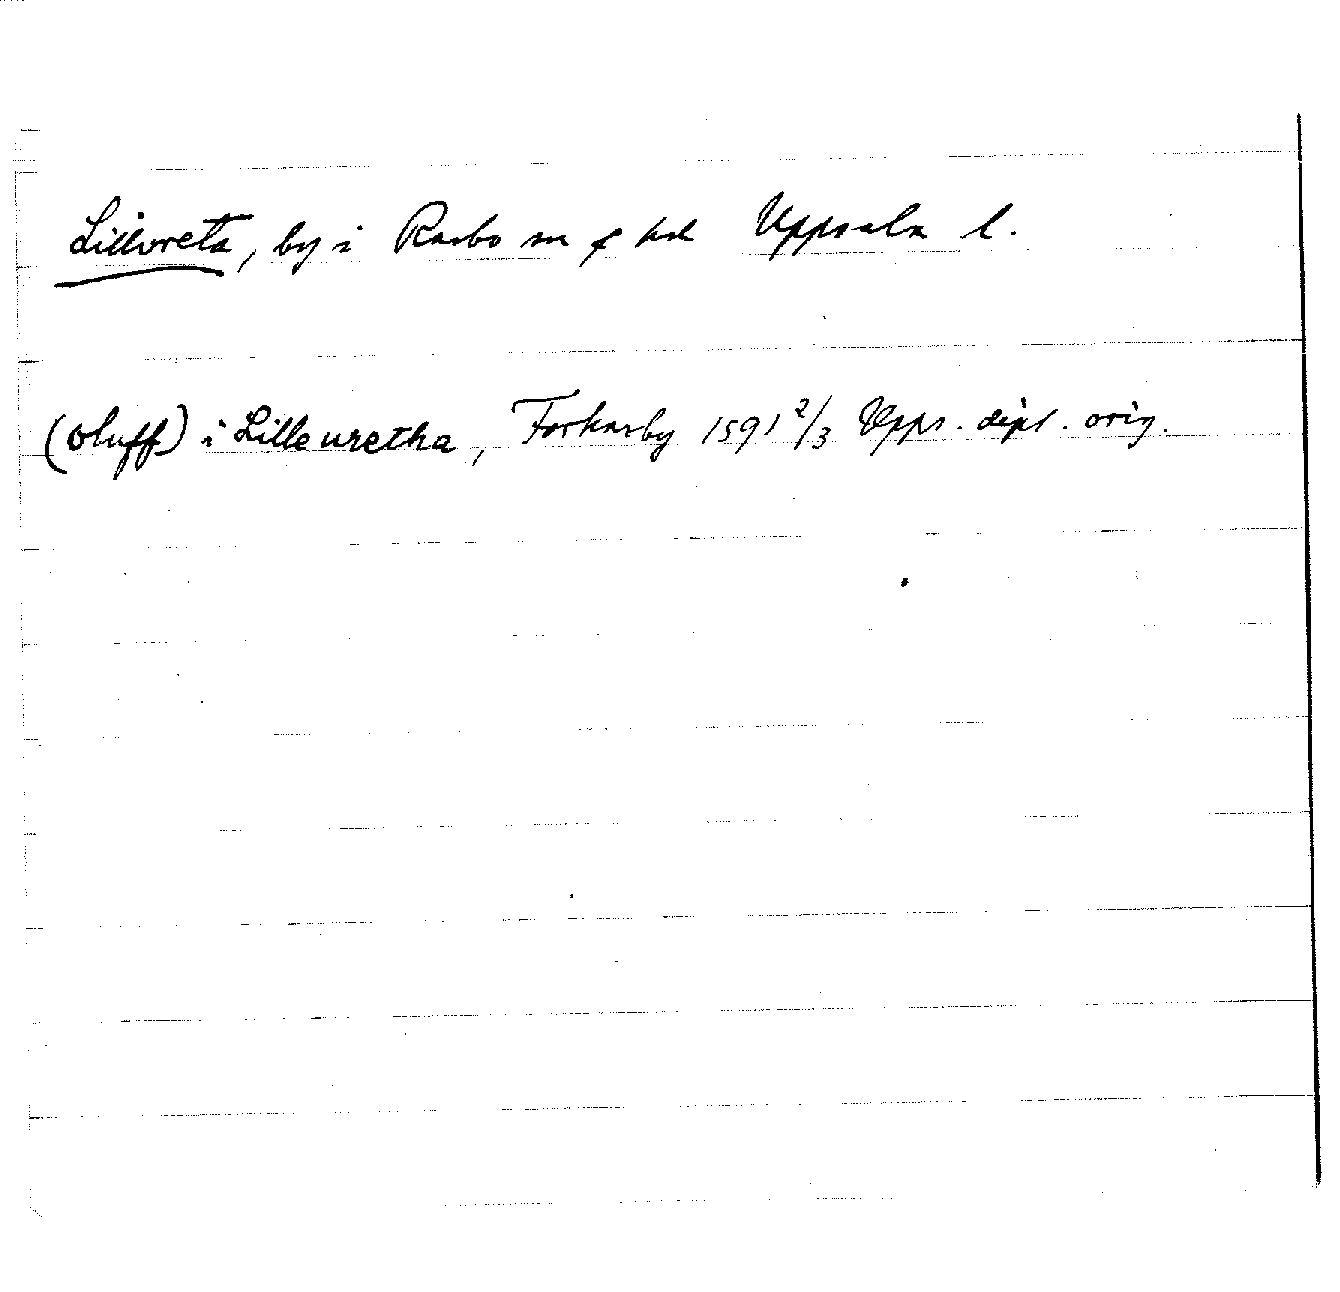 Lillvreta, by i Rasbo sn & hd Uppsala l.
(oluff) i Lille uretha, Forkarby 1591 2/3 Upps. dipl. orig.